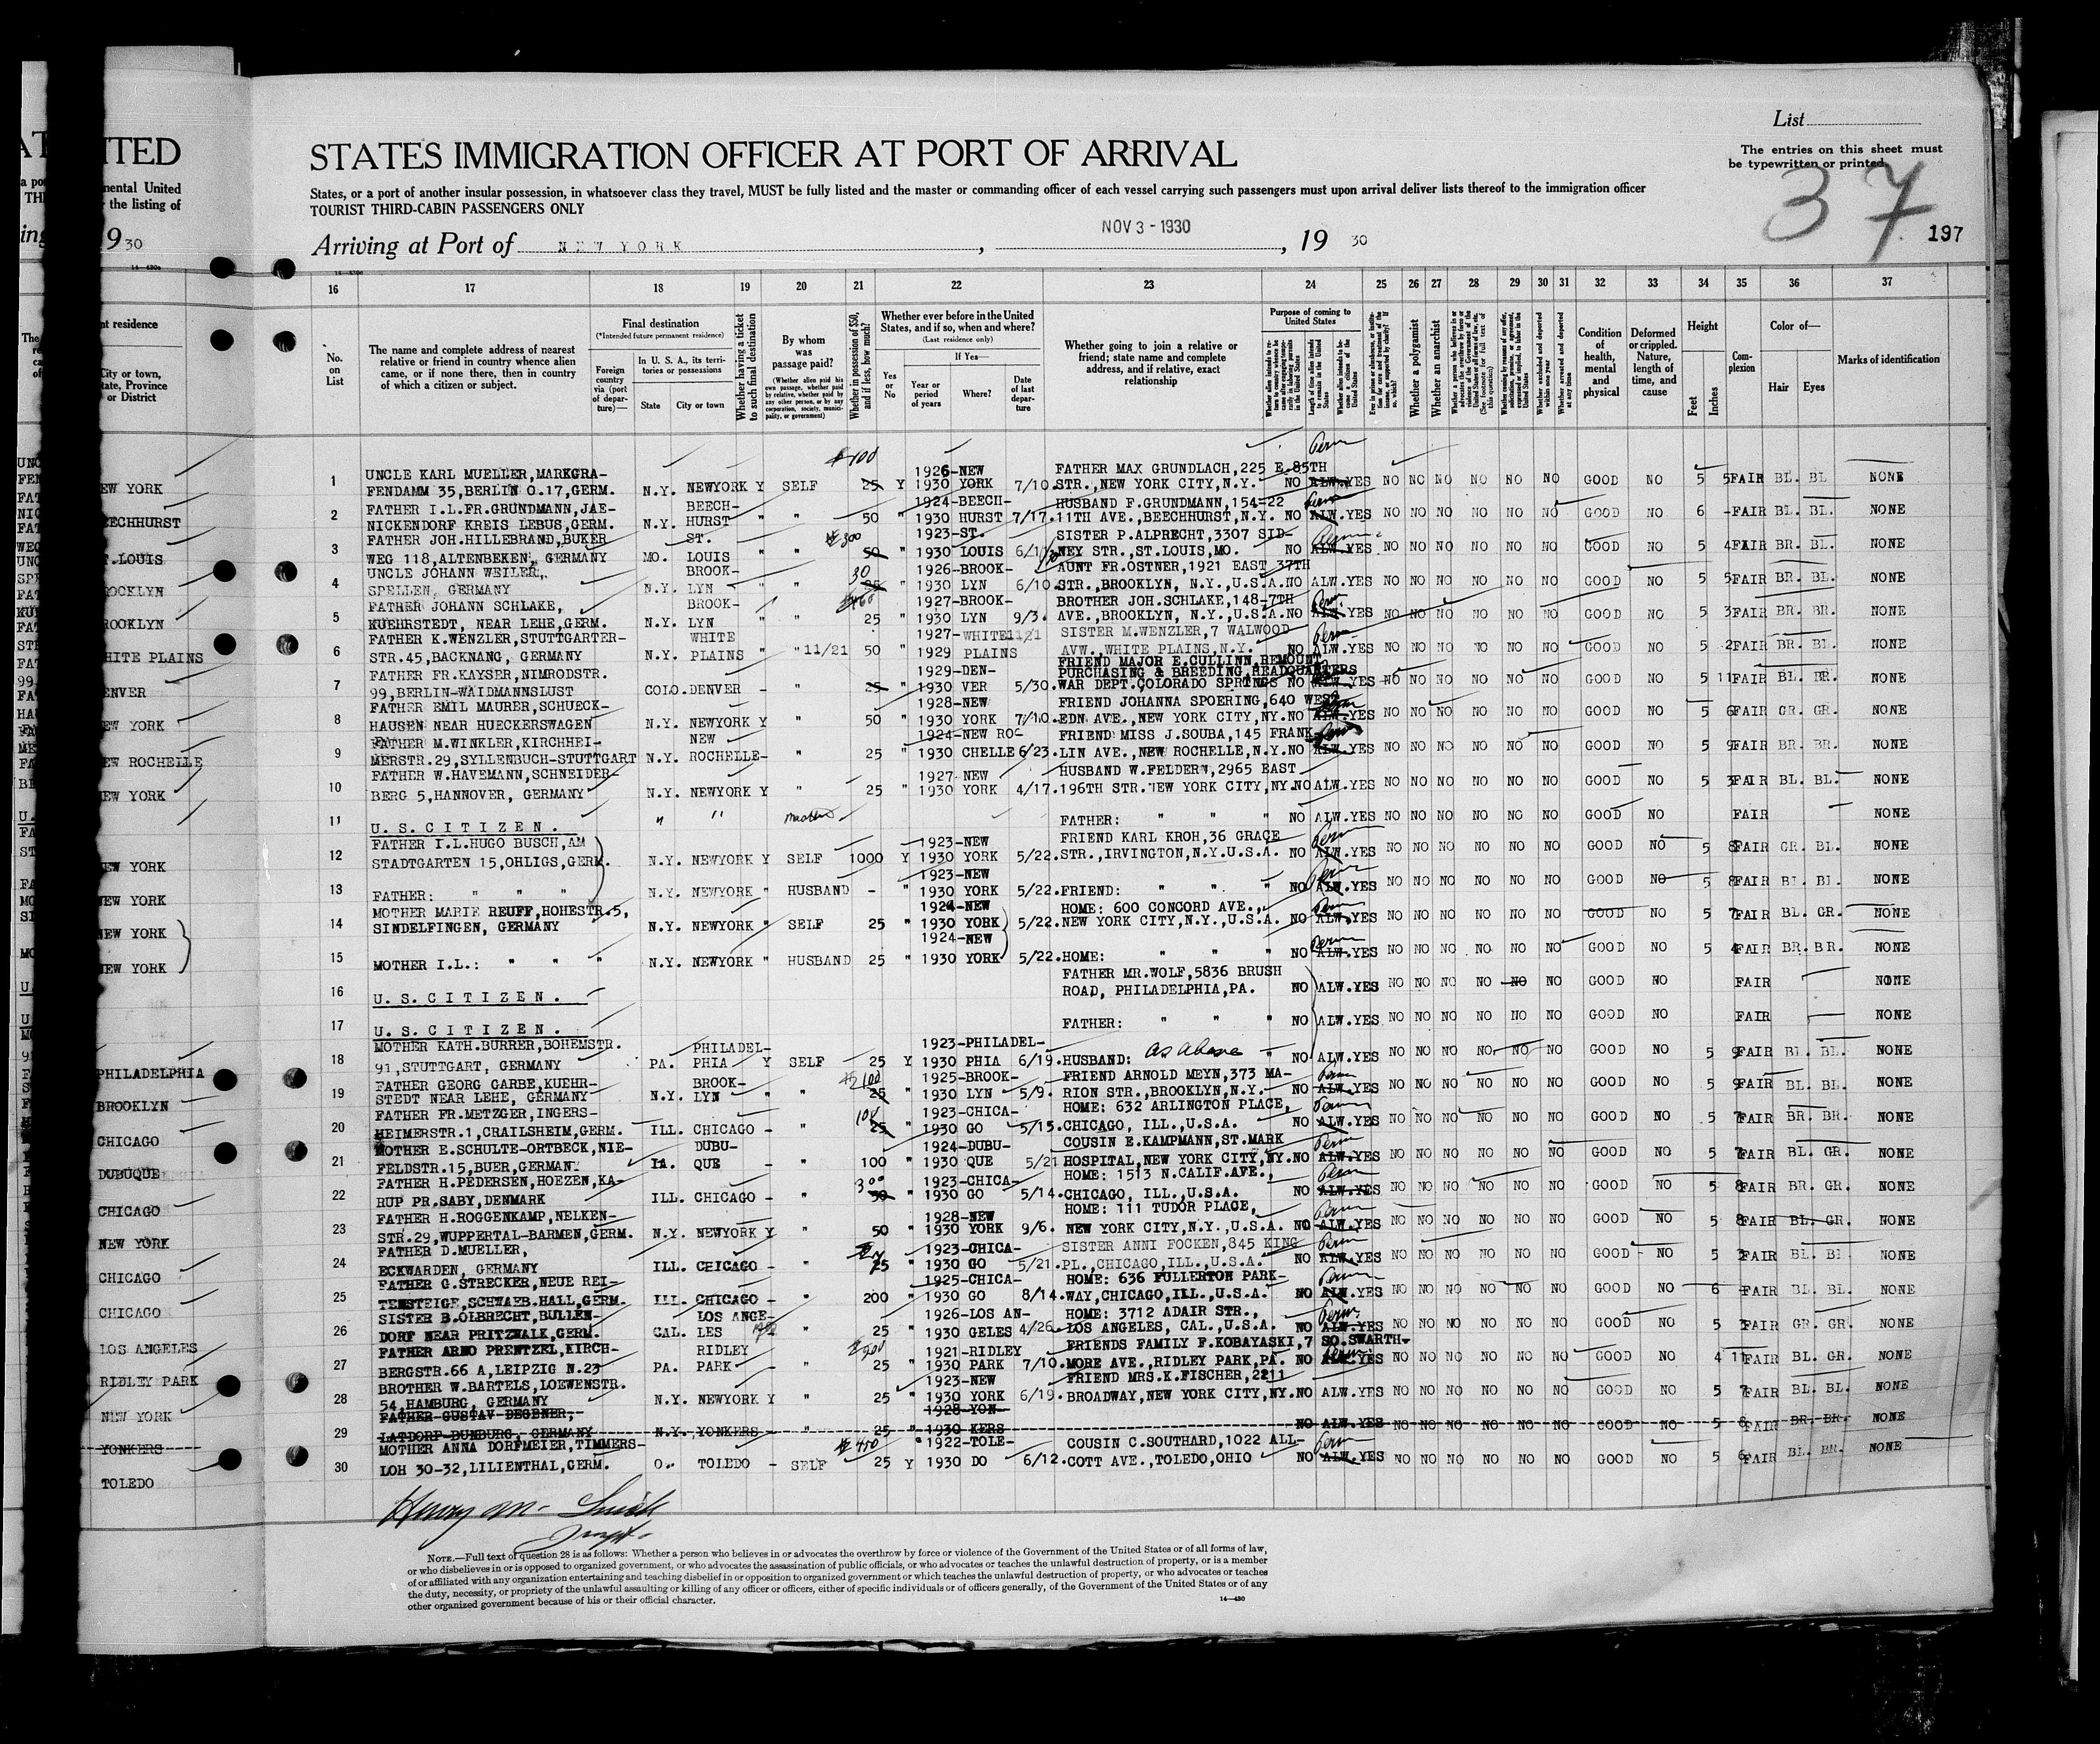 List
The entries on this sheet must
be typewritten or printed
37
197
STATES IMMIGRATION OFFICER AT PORT OF ARRIVAL
States, or a port of another insular possession, in whatsoever class they travel, MUST be fully listed and the master or commanding officer of each vessel carrying such passengers must upon arrival deliver lists thereof to the immigration officer
TOURIST THIRD-CABIN PASSENGERS ONLY
Arriving at Port of NEW YORK, NOV 3 - 1930, 19 30
16 17 18 19 20 21 22 23 24 25 26 27 28 29 30 31 32 33 34 35 36 37
No. on List
The name and complete address of nearest relative or friend in country whence alien came, or if none there, then in country of which a citizen or subject.
Final destination
(*Intended future permanent residence)
Foreign country via (port of departure)—
In U. S. A., its territories or possessions
State City or town
Whether having a ticket to such final destination
By whom was passage paid?
(Whether alien paid his own passage, whether paid by relative, whether paid by any other person, or by any corporation, society, municipality, or government)
Whether in possession of $50, and if less, how much?
Whether ever before in the United States, and if so, when and where?
(Last residence only)
Yes or No
If Yes—
Year or period of years Where? Date of last departure
Whether going to join a relative or friend; state name and complete address, and if relative, exact relationship
Purpose of coming to United States
Whether a polygamist
Whether an anarchist
Condition of health, mental and physical
Deformed or crippled. Nature, length of time, and cause
Height
Feet Inches
Complexion
Color of—
Hair Eyes
Marks of identification
1 UNCLE KARL MUELLER,MARKGRA- 1926-NEW FATHER MAX GRUNDLACH,225 E.85TH
FENDAMM 35,BERLIN O.17,GERM. N.Y. NEWYORK Y SELF 25 $100 Y 1930 YORK 7/10. STR.,NEW YORK CITY,N.Y. NO ALW.YES Perm NO NO NO NO NO NO GOOD NO 5 5 FAIR BL. BL NONE
2 FATHER I.L.FR.GRUNDMANN,JAE- BEECH- 1924-BEECH- HUSBAND F.GRUNDMANN,154-22
NICKENDORF KREIS LEBUS,GERM. N.Y. HURST " " 50 " 1930 HURST 7/17. 11TH AVE.,BEECHHURST,N.Y. NO ALW.YES NO NO NO NO NO NO GOOD NO 6 - FAIR BL. BL. NONE
3 FATHER JOH.HILLEBRAND,BUKER ST. 1923-ST. SISTER P.ALPRECHT,3307 SID-
WEG 118,ALTENBEKEN, GERMANY MO. LOUIS " " 50 $300 " 1930 LOUIS NEY STR.,ST.LOUIS,MO. NO ALW.YES NO NO NO NO NO NO GOOD NO 5 4 FAIR BR. BL. NONE
4 UNCLE JOHANN WEILER, BROOK- 1926-BROOK- AUNT FR.OSTNER,1921 EAST 37TH
SPELLEN, GERMANY N.Y. LYN " " 30 " 1930 LYN 6/10. STR.,BROOKLYN, N.Y.,U.S.A. NO ALW.YES NO NO NO NO NO NO GOOD NO 5 5 FAIR BR. BL. NONE
5 FATHER JOHANN SCHLAKE, BROOK- 1927-BROOK- BROTHER JOH.SCHLAKE,148-7TH
KUEHRSTEDT, NEAR LEHE,GERM. N.Y. LYN " " 25 " 1930 LYN 9/3. AVE.,BROOKLYN, N.Y.,U.S.A. NO ALW.YES Perm NO NO NO NO NO NO GOOD NO 5 3 FAIR BR. BR. NONE
6 FATHER K.WENZLER,STUTTGARTER- WHITE 1927-WHITE 11/21 SISTER M.WENZLER,7 WALWOOD
STR.45,BACKNANG, GERMANY N.Y. PLAINS " " 11/21 50 " 1929 PLAINS AVW.,WHITE PLAINS,N.Y. NO ALW.YES Perm NO NO NO NO NO NO GOOD NO 5 2 FAIR BR. BL. NONE
7 FATHER FR.KAYSER,NIMRODSTR. 1929-DEN- FRIEND MAJOR E.CULLINN,REMOUNT
PURCHASING & BREEDING,HEADQUARTERS
99,BERLIN-WAIDMANNSLUST COLO.DENVER - " 25 " 1930 VER 5/30. WAR DEPT.COLORADO SPRINGS NO ALW.YES NO NO NO NO NO NO GOOD NO 5 11 FAIR BL. BR. NONE
8 FATHER EMIL MAURER,SCHUECK- 1928-NEW FRIEND JOHANNA SPOERING,640 WEST
HAUSEN NEAR HUECKERSWAGEN N.Y. NEWYORK Y " 50 " 1930 YORK 7/10. EDN AVE.,NEW YORK CITY,NY. NO ALW.YES NO NO NO NO NO NO GOOD NO 5 6 FAIR GR. GR. NONE
9 FATHER M.WINKLER,KIRCHHEI- NEW 1924-NEW RO- FRIEND MISS J.SOUBA,145 FRANK-
MERSTR.29,SYLLENBUCH-STUTTGART N.Y. ROCHELLE- " 25 " 1930 CHELLE 6/23. LIN AVE.,NEW ROCHELLE,N.Y. NO ALW.YES NO NO NO NO NO NO GOOD NO 5 9 FAIR BR. BR. NONE
10 FATHER W.HAVEMANN,SCHNEIDER- 1927-NEW HUSBAND W.FELDERN,2965 EAST
BERG 5,HANNOVER, GERMANY N.Y. NEWYORK Y " 25 " 1930 YORK 4/17. 196TH STR.NEW YORK CITY,NY. NO ALW.YES NO NO NO NO NO NO GOOD NO 5 3 FAIR BL. BL. NONE
11 U.S.CITIZEN. " " mother FATHER: " " " NO ALW.YES NO NO NO NO NO NO GOOD NO FAIR NONE
12 FATHER I.L.HUGO BUSCH,AM 1923-NEW FRIEND KARL KROH,36 GRACE
STADTGARTEN 15,OHLIGS,GERM. N.Y. NEWYORK Y SELF 1000 Y 1930 YORK 5/22. STR.,IRVINGTON,N.Y.U.S.A. NO ALW.YES Perm NO NO NO NO NO NO GOOD NO 5 8 FAIR GR. BL. NONE
13 1923-NEW
FATHER: " " " N.Y. NEWYORK " HUSBAND - " 1930 YORK 5/22. FRIEND: " " " NO ALW.YES Perm NO NO NO NO NO NO GOOD NO 5 8 FAIR BL. BL. NONE
14 MOTHER MARIE REUFF,HOHESTR.5, 1924-NEW HOME: 600 CONCORD AVE.,
SINDELFINGEN, GERMANY N.Y. NEWYORK " SELF 25 " 1930 YORK 5/22. NEW YORK CITY,N.Y.,U.S.A. NO ALW.YES Perm NO NO NO NO NO NO GOOD NO 5 7 FAIR BL. GR. NONE
15 1924-NEW
MOTHER I.L.: " " " N.Y. NEWYORK " HUSBAND 25 " 1930 YORK 5/22. HOME: " " " NO ALW.YES Perm NO NO NO NO NO NO GOOD NO 5 4 FAIR BR. BR. NONE
16 FATHER MR.WOLF,5836 BRUSH
U.S.CITIZEN. ROAD, PHILADELPHIA,PA. NO ALW.YES NO NO NO NO NO NO GOOD NO FAIR NONE
17 U.S.CITIZEN. FATHER: " " " NO ALW.YES NO NO NO NO NO NO GOOD NO FAIR NONE
18 MOTHER KATH.BURRER,BOHEMSTR. PHILADEL- 1923-PHILADEL-
91,STUTTGART, GERMANY PA. PHIA Y SELF 25 Y 1930 PHIA 6/19. HUSBAND: as above " NO ALW.YES NO NO NO NO NO NO GOOD NO 5 9 FAIR BL. BL. NONE
19 FATHER GEORG GARBE,KUEHR- BROOK- 1925-BROOK- FRIEND ARNOLD MEYN,373 MA-
STEDT NEAR LEHE, GERMANY N.Y. LYN " " 25 $100 " 1930 LYN 5/9. RION STR.,BROOKLYN,N.Y. NO ALW.YES Perm NO NO NO NO NO NO GOOD NO 5 9 FAIR BL. BL. NONE
20 FATHER FR.METZGER,INGERS- 1923-CHICA- HOME: 632 ARLINGTON PLACE,
HEIMERSTR.1,CRAILSHEIM,GERM. ILL. CHICAGO - " 25 " 1930 GO 5/15. CHICAGO, ILL.,U.S.A. NO ALW.YES Perm NO NO NO NO NO NO GOOD NO 5 7 FAIR BR. BR. NONE
21 MOTHER E.SCHULTE-ORTBECK,NIE- DUBU- 1924-DUBU- COUSIN E.KAMPMANN,ST.MARK
FELDSTR.15,BUER,GERMANY IA. QUE - " 100 " 1930 QUE 5/21 HOSPITAL,NEW YORK CITY,NY. NO ALW.YES Perm NO NO NO NO NO NO GOOD NO 5 7 FAIR BL. GR. NONE
22 FATHER H.PEDERSEN,HOEZEN,KA- 1923-CHICA- HOME: 1513 N.CALIF.AVE.,
RUP PR,SABY,DENMARK ILL. CHICAGO - " 50 300 " 1930 GO 5/14. CHICAGO, ILL.,U.S.A. NO ALW.YES Perm NO NO NO NO NO NO GOOD NO 5 8 FAIR BR. GR. NONE
23 FATHER H.ROGGENKAMP,NELKEN- 1928-NEW HOME: 111 TUDOR PLACE,
STR.29,WUPPERTAL-BARMEN,GERM. N.Y. NEWYORK Y 50 " 1930 YORK 9/6. NEW YORK CITY,N.Y.,U.S.A. NO ALW.YES Perm NO NO NO NO NO NO GOOD NO 5 8 FAIR BL. GR. NONE
24 FATHER D.MUELLER, 1923-CHICA- SISTER ANNI FOCKEN,845 KING
ECKWARDEN, GERMANY ILL. CHICAGO - " " 1930 GO 5/21. PL.,CHICAGO,ILL.,U.S.A. NO ALW.YES Perm NO NO NO NO NO NO GOOD NO 5 FAIR BL. BL. NONE
25 FATHER G.STRECKER,NEUE REI- 1925-CHICA- HOME: 636 FULLERTON PARK-
TENSTEIGE,SCHWAEB.HALL,GERM. ILL. CHICAGO - " 200 " 1930 GO 8/14. WAY,CHICAGO,ILL.,U.S.A. NO ALW.YES Perm NO NO NO NO NO NO GOOD NO 6 - FAIR BL. BL. NONE
26 SISTER B.OLBRECHT,BULLEN- LOS ANGE- 1926-LOS AN- HOME: 3712 ADAIR STR.,
DORF NEAR PRITZWALK,GERM. CAL. LES " 25 " 1930 GELES 4/26. LOS ANGELES, CAL.,U.S.A. NO ALW.YES Perm NO NO NO NO NO NO GOOD NO 5 FAIR GR. GR. NONE
27 FATHER ARNO PRENTZEL,KIRCH- RIDLEY 1921-RIDLEY FRIENDS FAMILY F.KOBAYASKI,7 SO.SWARTH-
BERGSTR.66 A,LEIPZIG N.23 PA. PARK - " 25 " 1930 PARK 7/10. MORE AVE.,RIDLEY PARK,PA. NO ALW.YES NO NO NO NO NO NO GOOD NO 4 11 FAIR BL. GR. NONE
28 BROTHER W.BARTELS,LOEWENSTR. 1923-NEW FRIEND MRS.K.FISCHER,2211
54,HAMBURG, GERMANY N.Y. NEWYORK Y " 25 " 1930 YORK 6/19. BROADWAY,NEW YORK CITY,NY. NO ALW.YES NO NO NO NO NO NO GOOD NO 5 7 FAIR BL. BL. NONE
29 FATHER GUSTAV DEGENER, 1928-YON-
LATDORP-BUMBURG, GERMANY N.Y. YONKERS - " 25 " 1930 KERS NO ALW.YES NO NO NO NO NO NO GOOD NO 5 6 FAIR BR. BR. NONE
30 MOTHER ANNA DORFMEIER,TIMMERS- 1922-TOLE- COUSIN C.SOUTHARD,1022 ALL-
LOH 30-32,LILIENTHAL,GERM. O. TOLEDO - SELF 25 Y 1930 DO 6/12. COTT AVE.,TOLEDO,OHIO NO ALW.YES Perm NO NO NO NO NO NO GOOD NO 5 6 FAIR BL. BR. NONE
NOTE.—Full text of question 28 is as follows: Whether a person who believes in or advocates the overthrow by force or violence of the Government of the United States or of all forms of law,
or who disbelieves in or is opposed to organized government, or who advocates the assassination of public officials, or who advocates or teaches the unlawful destruction of property, or is a member
of or affiliated with any organization entertaining and teaching disbelief in or opposition to organized government or which teaches the unlawful destruction of property, or who advocates or teaches
the duty, necessity, or propriety of the unlawful assaulting or killing of any officer or officers, either of specific individuals or of officers generally, of the Government of the United States or of any
other organized government because of his or their official character.
14—430
ITED
mental United
the listing of
9 30
nt residence
City or town,
State, Province
or District
EW YORK
EECHHURST
T.LOUIS
OCKLYN
ROOKLYN
HITE PLAINS
ENVER
EW YORK
EW ROCHELLE
EW YORK
EW YORK
NEW YORK
NEW YORK
NEW YORK
PHILADELPHIA
BROOKLYN
CHICAGO
DUBUQUE
CHICAGO
NEW YORK
CHICAGO
CHICAGO
LOS ANGELES
RIDLEY PARK
NEW YORK
YONKERS
TOLEDO